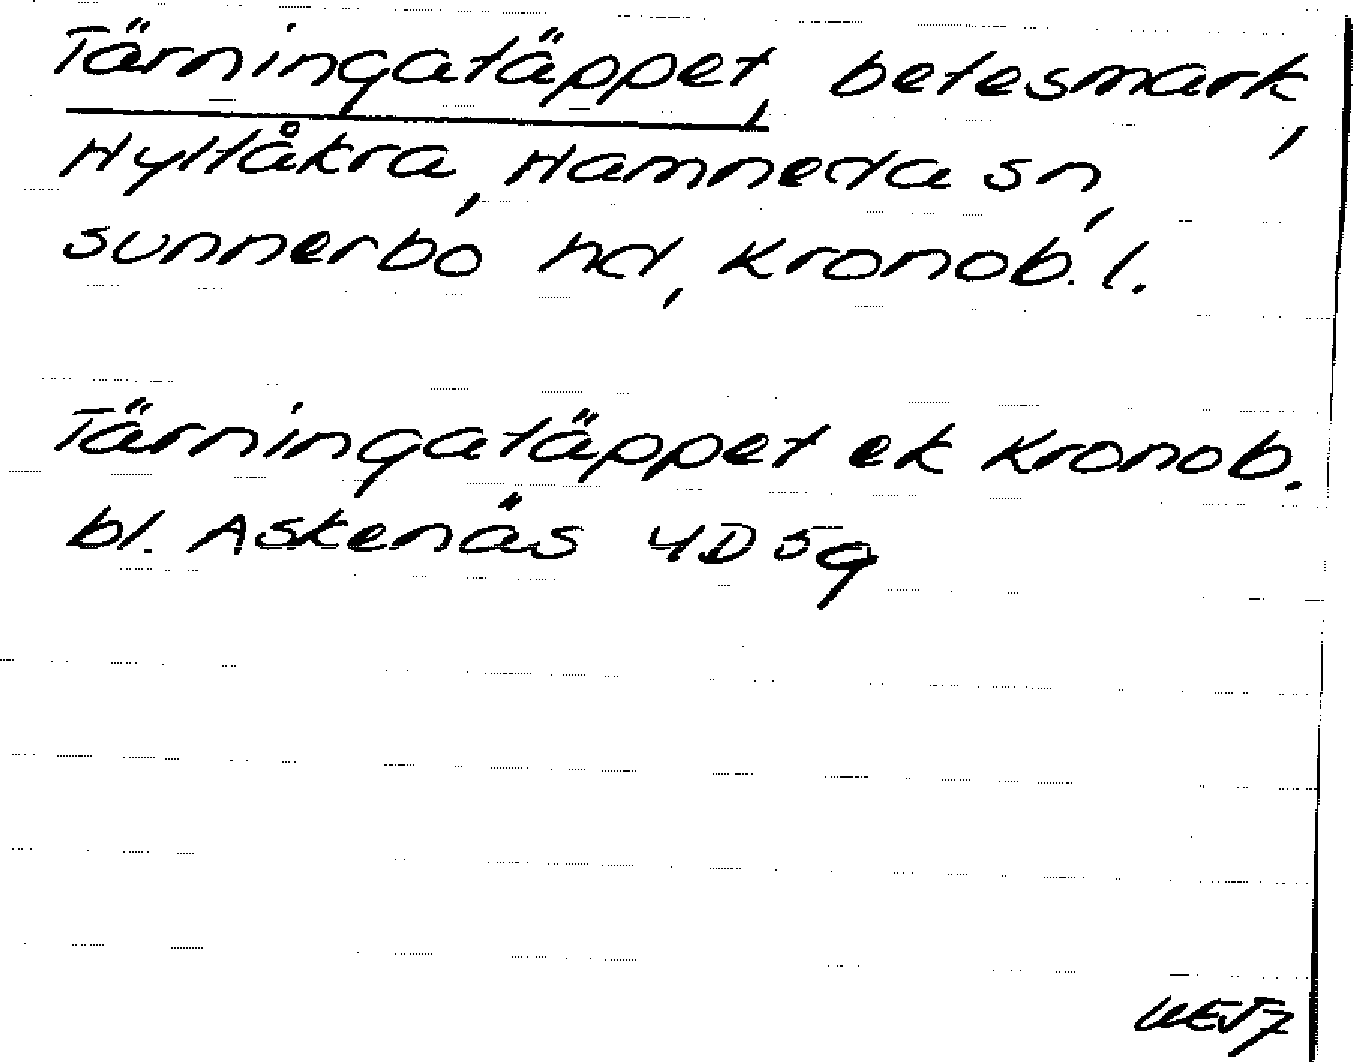 Tärningatäppet, betesmark,
Hyltåkra, Hamneda sn,
sunnerbo hd, Kronob. l.
Tärningatäppet ek Kronob.
bl. Askenäs 4D 5g